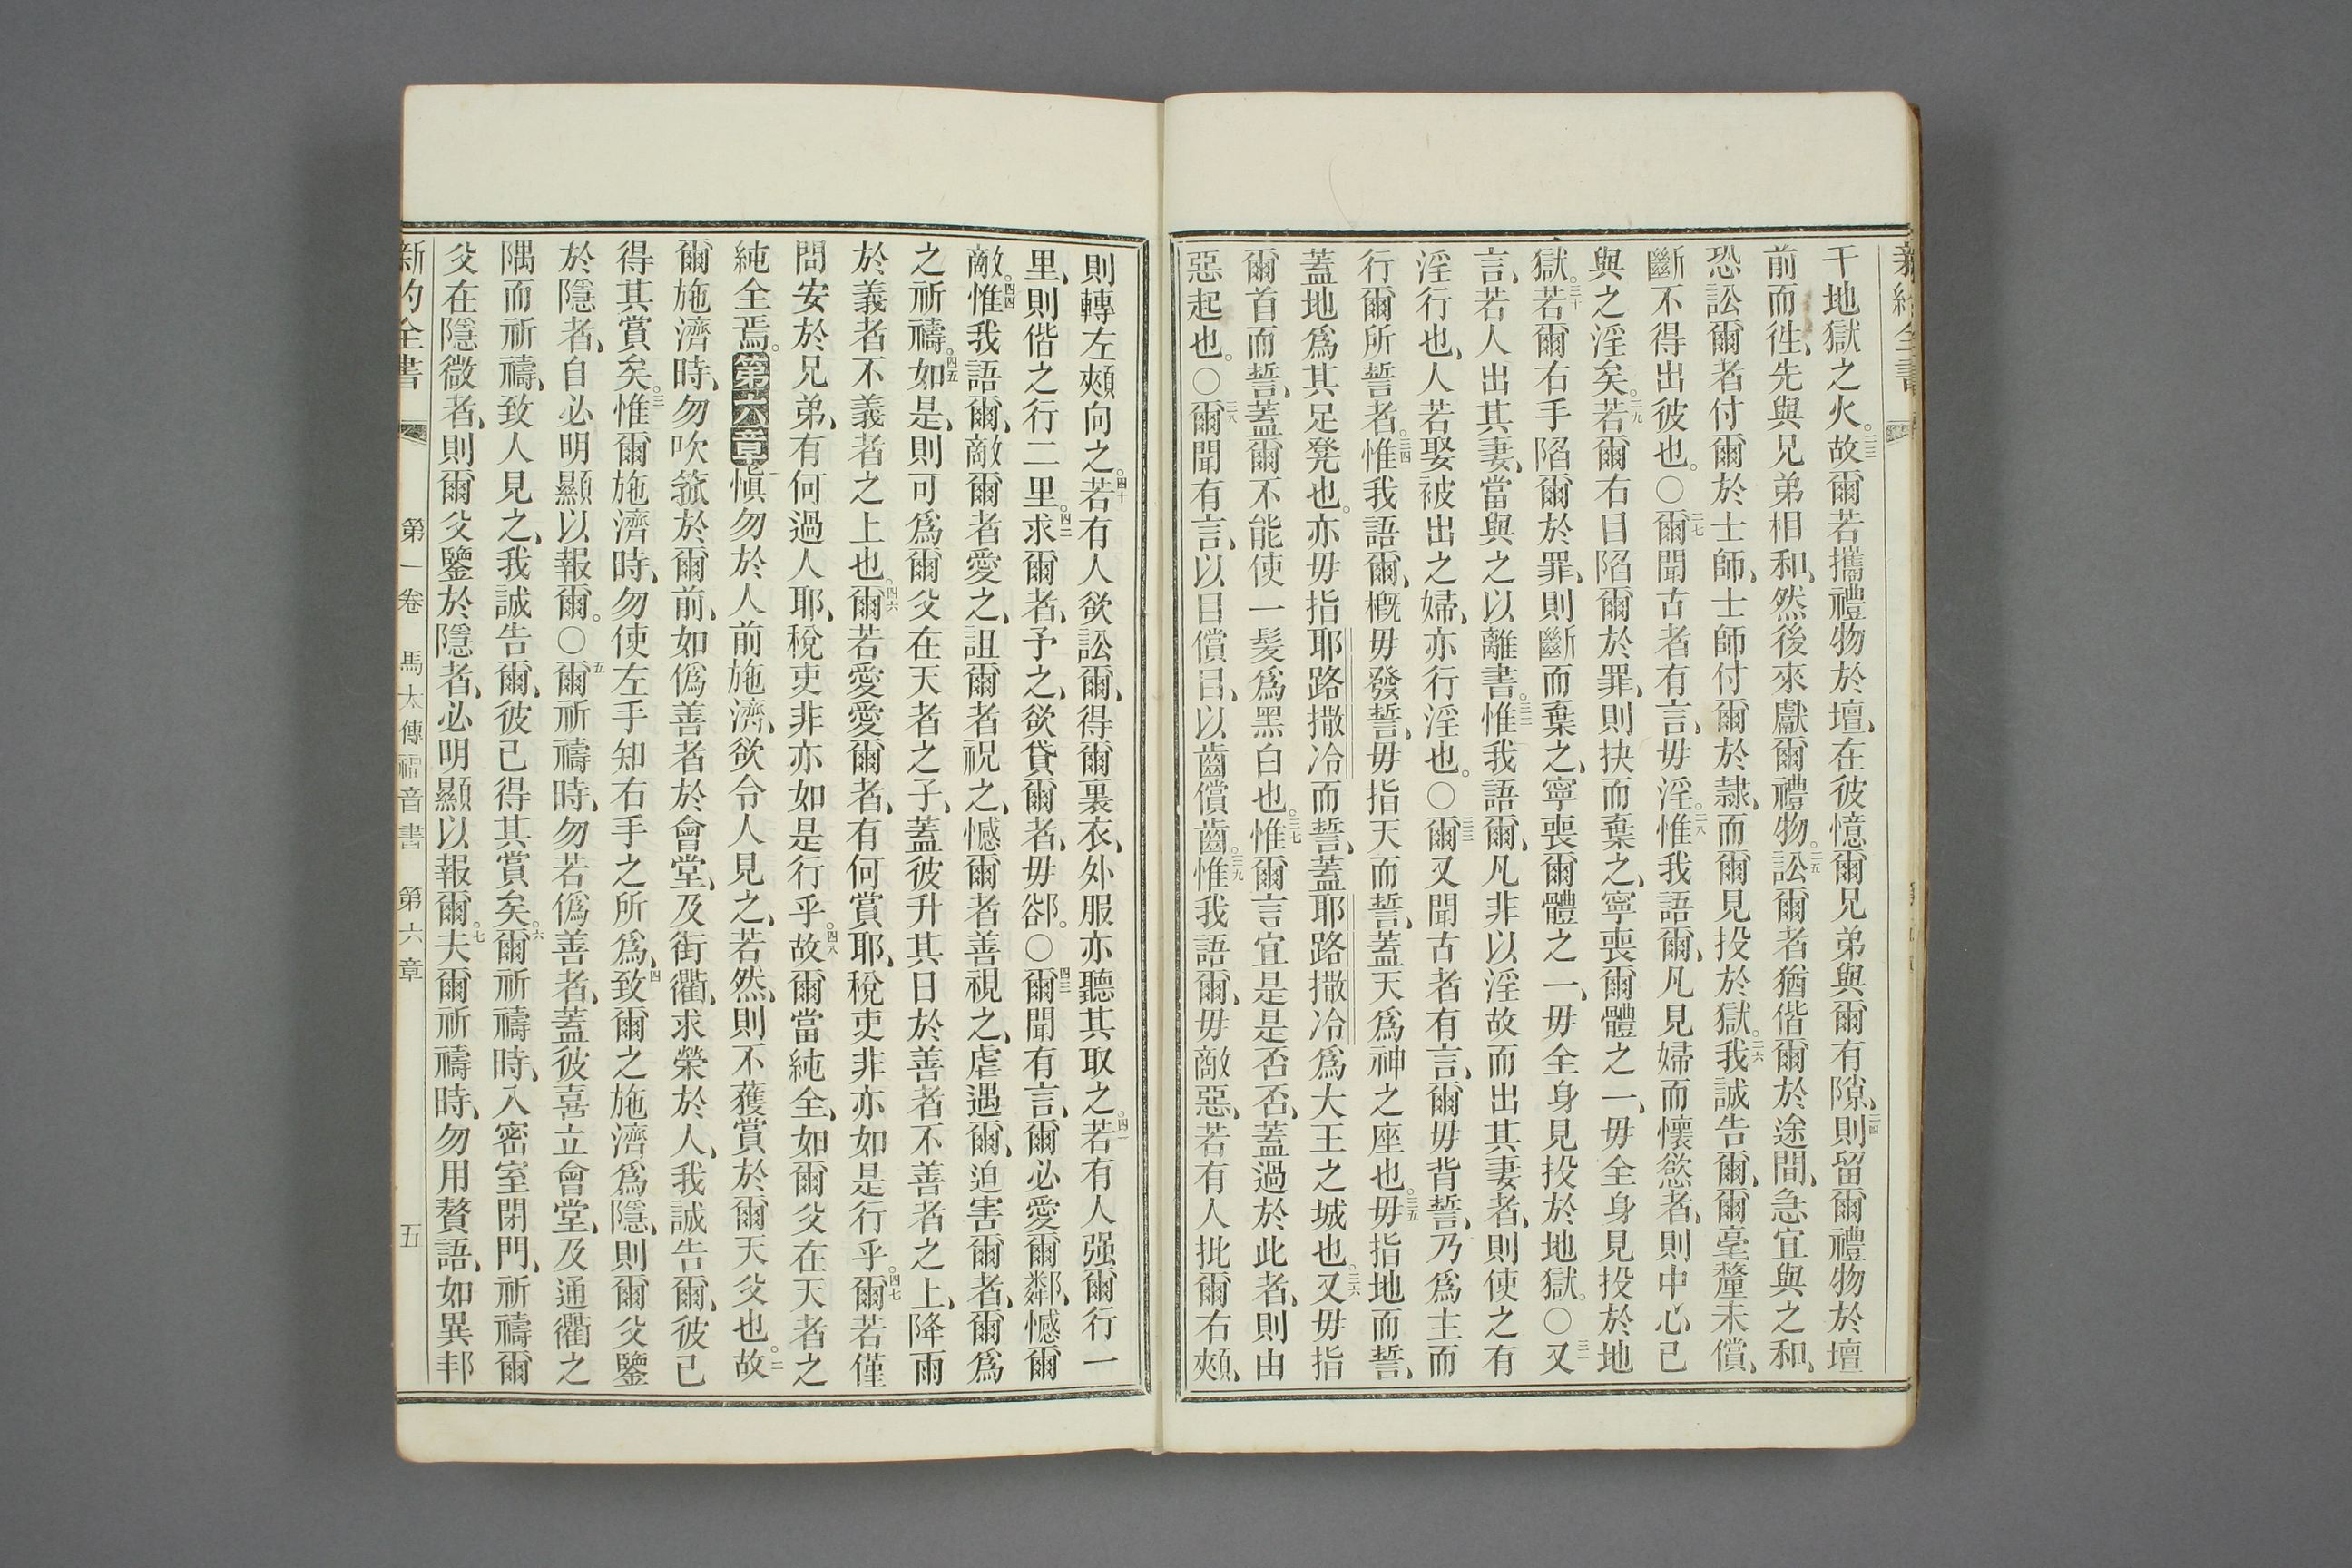 新約全書
干地獄之火。二三故爾若攜禮物於壇、在彼憶爾兄弟與爾有隙、二四則留爾禮物於壇
前而徃、先與兄弟相和、然後來獻爾禮物。二五訟爾者猶偕爾於途間、急宜與之和、
恐訟爾者付爾於士師、士師付爾於隸、而爾見投於獄。二六我誠告爾、爾毫釐未償、
斷不得出彼也。○二七爾聞古者有言、毋淫。二八惟我語爾、凡見婦而懷慾者、則中心已
與之淫矣。二九若爾右目陷爾於罪、則抉而棄之、寧喪爾體之一、毋全身見投於地
獄。三十若爾右手陷爾於罪、則斷而棄之、寧喪爾體之一、毋全身見投於地獄。○三一又
言、若人出其妻、當與之以離書。三二惟我語爾、凡非以淫故而出其妻者、則使之有
淫行也、人若娶被出之婦、亦行淫也。○三三爾又聞古者有言、爾毋背誓、乃爲主而
行爾所誓者。三四惟我語爾、槪毋發誓、毋指天而誓、蓋天爲神之座也。三五毋指地而誓、
蓋地爲其足凳也。亦毋指耶路撒冷而誓、蓋耶路撒冷爲大王之城也。三六又毋指
爾首而誓、蓋爾不能使一髮爲黑白也。三七惟爾言宜是是否否、蓋過於此者、則由
惡起也。○三八爾聞有言、以目償目、以齒償齒。三九惟我語爾、毋敵惡、若有人批爾右頰、
則轉左頰向之。四十若有人欲訟爾、得爾裏衣、外服亦聽其取之。四一若有人强爾行一
里、則偕之行二里。四二求爾者、予之、欲貸爾者、毋郤。○四三爾聞有言、爾必愛爾鄰、憾爾
敵。四四惟我語爾、敵爾者愛之、詛爾者祝之、憾爾者善視之、虐遇爾、迫害爾者、爾爲
之祈禱。四五如是、則可爲爾父在天者之子、蓋彼升其日於善者不善者之上、降雨
於義者不義者之上也。四六爾若愛愛爾者、有何賞耶、稅吏非亦如是行乎。四七爾若僅
問安於兄弟、有何過人耶、稅吏非亦如是行乎。四八故爾當純全、如爾父在天者之
純全焉。第六章一愼勿於人前施濟、欲令人見之、若然、則不獲賞於爾天父也。二故
爾施濟時、勿吹箛於爾前、如僞善者於會堂、及街衢、求榮於人、我誠告爾、彼已
得其賞矣。三惟爾施濟時、勿使左手知右手之所爲、四致爾之施濟爲隱、則爾父鑒
於隱者、自必明顯以報爾。○五爾祈禱時、勿若僞善者、蓋彼喜立會堂、及通衢之
隅而祈禱、致人見之、我誠告爾、彼已得其賞矣。六爾祈禱時、入密室閉門、祈禱爾
父在隱微者、則爾父鑒於隱者、必明顯以報爾。七夫爾祈禱時、勿用贅語、如異邦
新約全書 第一卷 馬太傳福音書 第六章 五